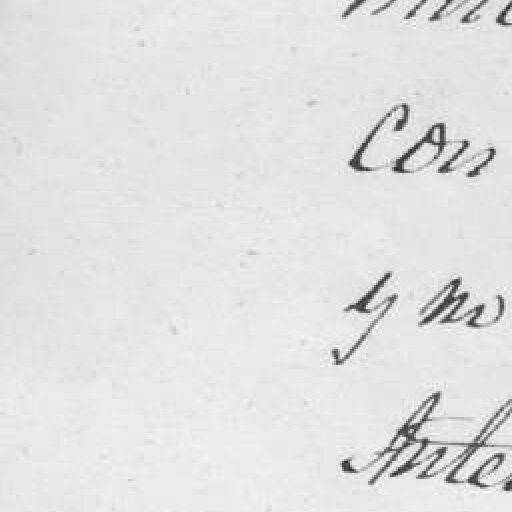 Con
y no
Ante